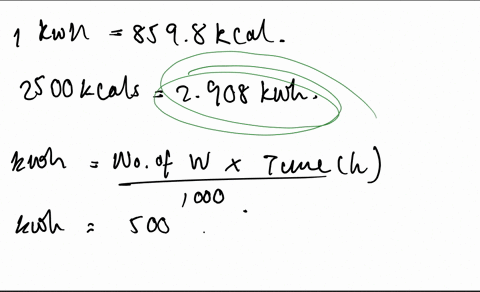 1 kwh = 859.8 kcal.
2500 kcals = 2.908 kwh.
kwh = No. of W x Time (h)
1000
kwh = 500